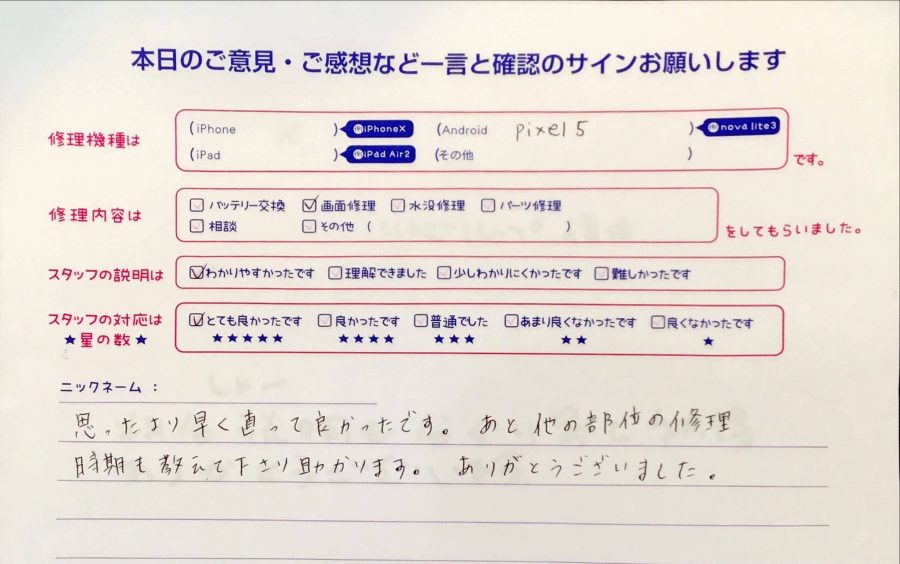 本日のご意見・ご感想など一言と確認のサインお願いします
修理機種は
(iPhone ) iPhoneX (Android pixel 5 ) nova lite3
(iPad ) iPad Air2 (その他 )
です。
修理内容は
バッテリー交換 画面修理 水没修理 パーツ修理
相談 その他 ( )
をしてもらいました。
スタッフの説明は
わかりやすかったです 理解できました 少しわかりにくかったです 難しかったです
スタッフの対応は
★星の数★
とても良かったです 良かったです 普通でした あまり良くなかったです 良くなかったです
★★★★★ ★★★★ ★★★ ★★ ★
ニックネーム：
思ったより早く直って良かったです。あと他の部位の修理
時期も教えて下さり助かります。ありがとうございました。